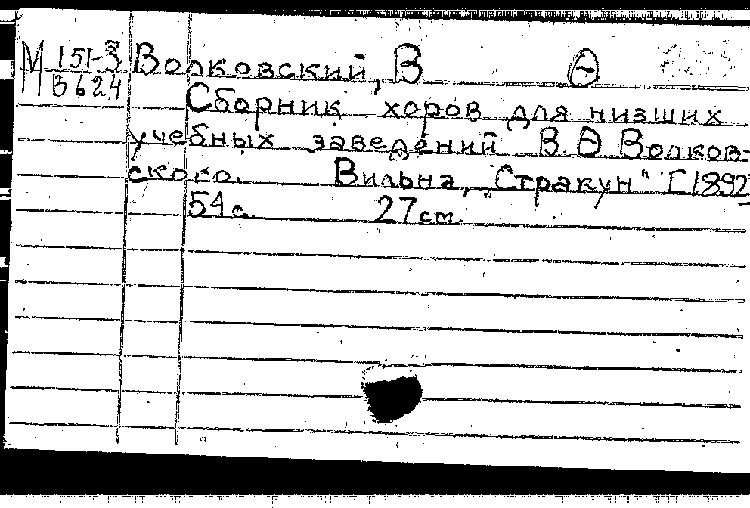 М 151-3 Волковский, В Ѳ
3624
Сборник хоров для низших
учебных заведений В. Ѳ Волков-
ского. Вильна, "Стракун" [1892
54 с. 27 см.